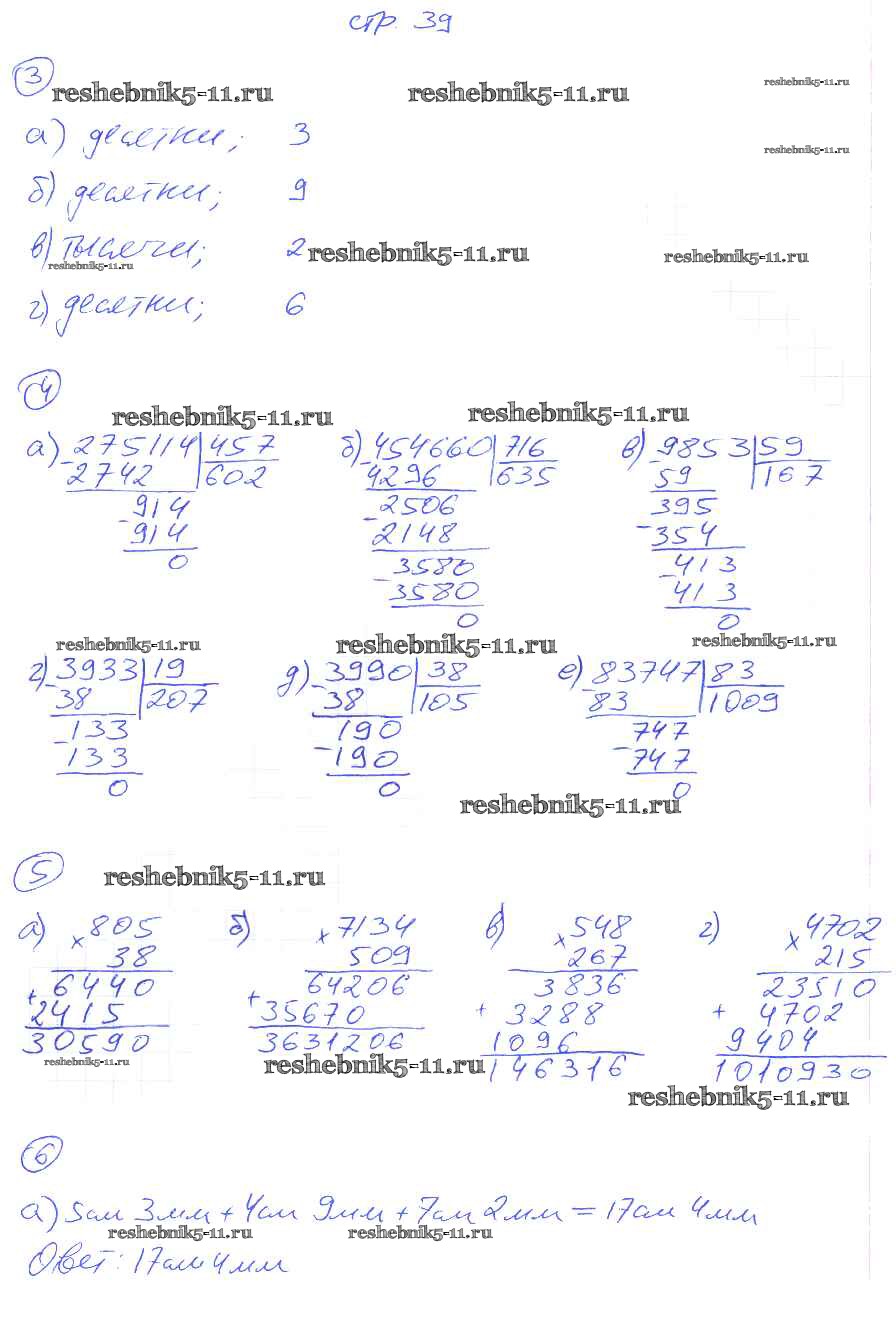 стр. 39
3
reshebnik5-11.ru reshebnik5-11.ru reshebnik5-11.ru
а) десятки; 3
reshebnik5-11.ru
б) десятки; 9
в) тысячи; 2 reshebnik5-11.ru reshebnik5-11.ru
reshebnik5-11.ru
г) десятки; 6
4
reshebnik5-11.ru reshebnik5-11.ru
а) 275114 | 457 б) 454660 | 716 в) 9853 | 59
- 2742 602 - 4296 635 - 59 167
914 2506 395
- 914 - 2148 - 354
0 3580 413
- 3580 - 413
0 0
reshebnik5-11.ru reshebnik5-11.ru reshebnik5-11.ru
г) 3933 | 19 д) 3990 | 38 е) 83747 | 83
- 38 207 - 38 105 - 83 1009
133 190 747
- 133 - 190 - 747
0 0 0
reshebnik5-11.ru
5
reshebnik5-11.ru
а) × 805 б) × 7134 в) × 548 г) × 4702
38 509 267 215
6440 64206 3836 23510
+ 2415 + 35670 + 3288 + 4702
30590 3631206 1096 9404
reshebnik5-11.ru reshebnik5-11.ru 146316 1010930
reshebnik5-11.ru
6
а) 5см 3мм + 4см 9мм + 7см 2мм = 17см 4мм
reshebnik5-11.ru reshebnik5-11.ru
Ответ: 17см 4мм